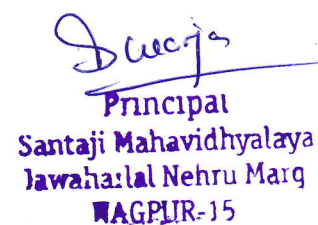 Principal
Santaji Mahavidhyalaya
Jawaharlal Nehru Marg
NAGPUR-15